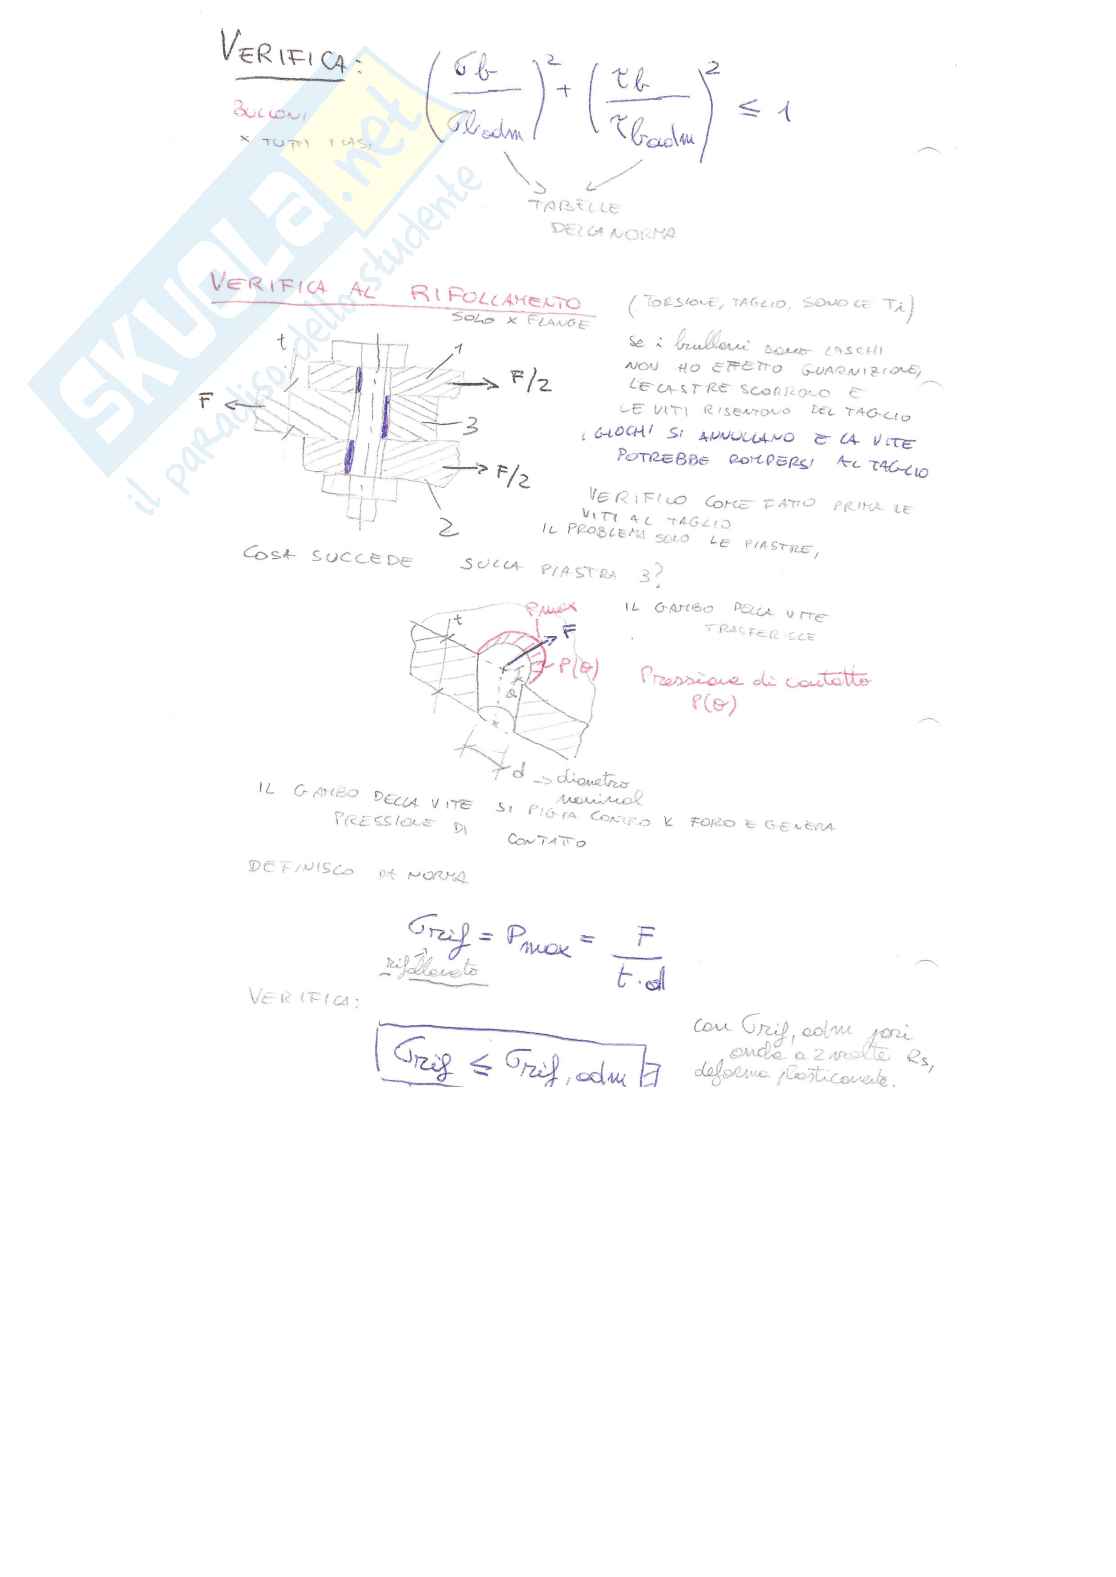 VERIFICA:
BULLONI
x TUTTI I CASI
(σb / σb adm)² + (τb / τb adm)² ≤ 1
TABELLE
DELLA NORMA
SKUOLA.net
il paradiso dello studente
VERIFICA AL RIFOLLAMENTO
SOLO x FLANGE
(TORSIONE, TAGLIO, SONO LE Ti)
se i bulloni sono LASCHI
NON HO EFFETTO GUARNIZIONE,
LE LASTRE SCORRONO E
LE VITI RISENTONO DEL TAGLIO
I GIOCHI SI ANNULLANO E LA VITE
POTREBBE ROMPERSI AL TAGLIO
t
1
F/2
F
3
F/2
2
VERIFICO COME FATTO PRIMA LE
VITI AL TAGLIO
IL PROBLEMA SONO LE PIASTRE,
COSA SUCCEDE SULLA PIASTRA 3?
IL GAMBO DELLA VITE
TRASFERISCE
t
Pmax
F
P(θ)
θ
Pressione di contatto
P(θ)
d → diametro
nominal
IL GAMBO DELLA VITE SI PIGIA CONTRO IL FORO E GENERA
PRESSIONE DI CONTATTO
DEFINISCO DA NORMA
σrif = Pmax = F / t·d
rifollamento
VERIFICA:
σrif ≤ σrif, adm
con σrif, adm pari
anche a 2 volte Rs,
deforma plasticamente.